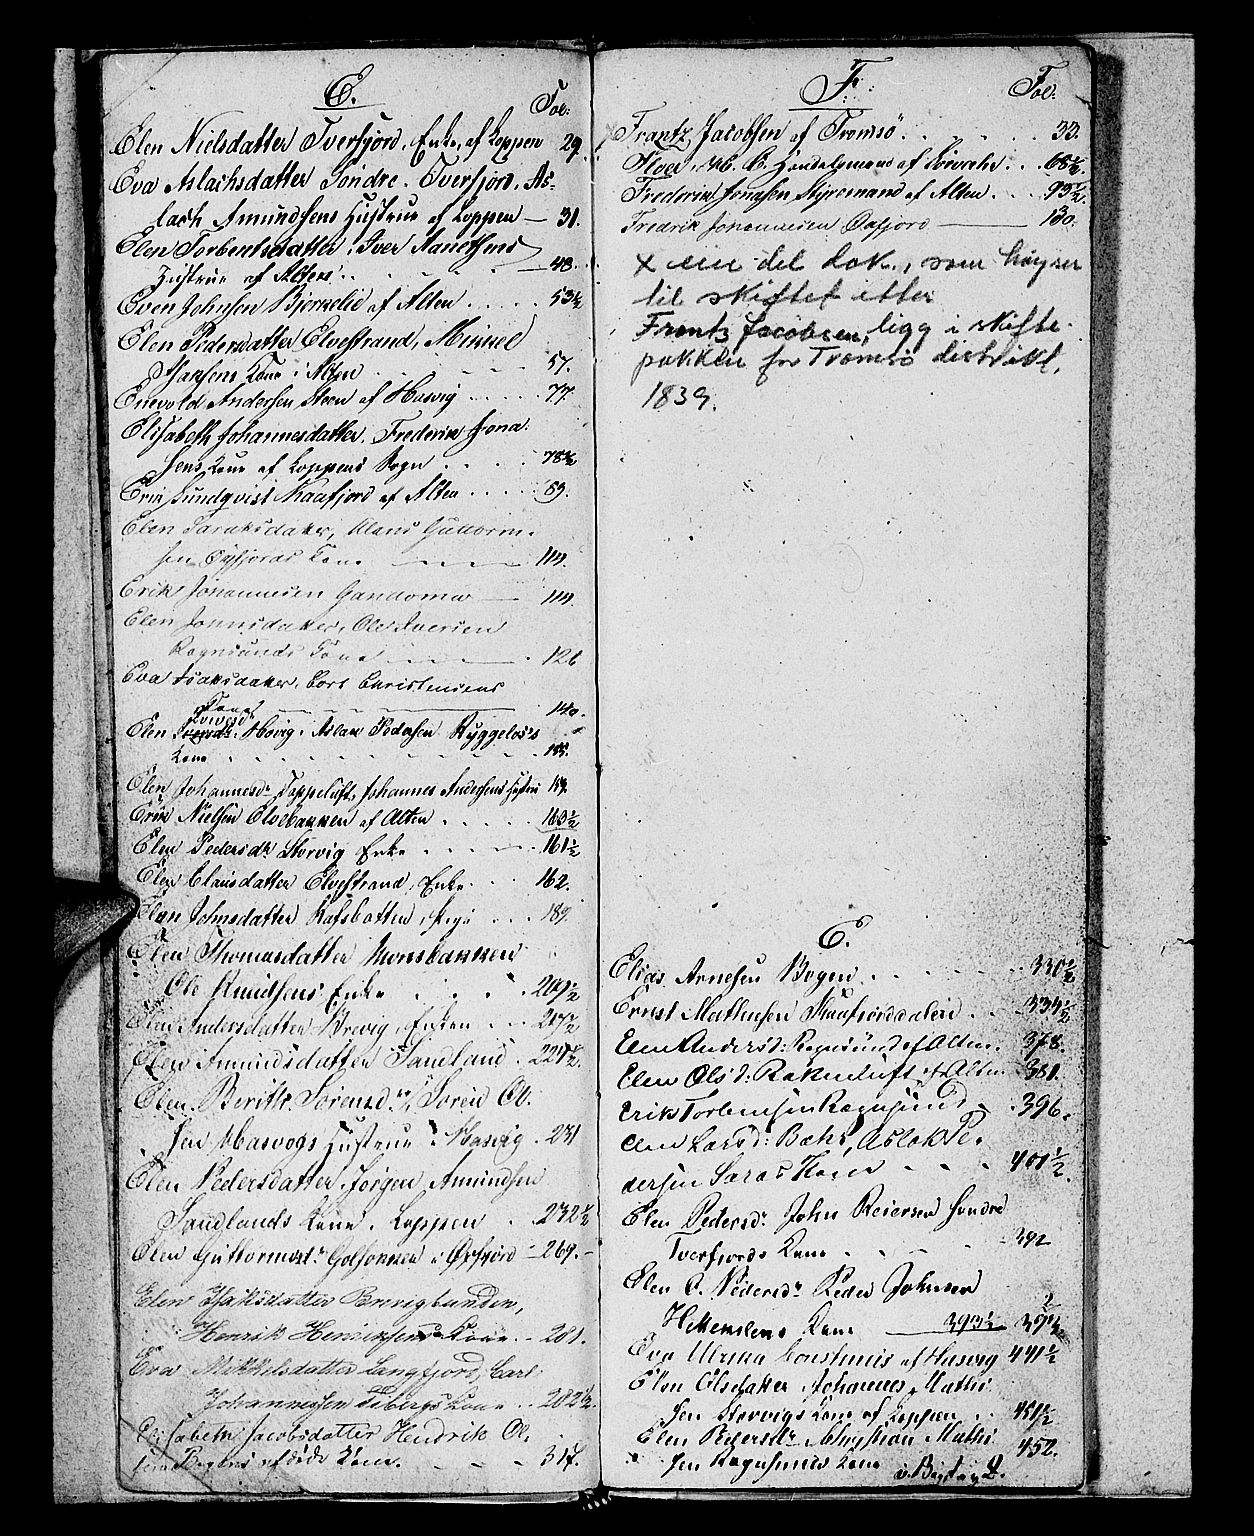 E.
Fol:
Elen Nielsdatter Tverfjord, Enke, af Loppen 29.
Eva Aslachsdatter Söndre Tverfjord, As-
lach Amundsens Hustrue af Loppen — 31.
Elen Torbentsdatter, Iver
Hustrue af Alten 48.
Even Johnsen Bjerkelie af Alten 53½
Elen Pedersdatter Elvestrand, Mikkel
Isaksens Kone i Alten 57.
Enevold Andersen Steen af Hasvig 77.
Elisabeth Johannesdatter, Frederik Jona-
sens Kone af Loppens Sogn 78½
Erik Lundqvist Kaafjord af Alten 89.
Elen Isaaksdatter, Klaus Guttorm-
sen Öxfjords Kone 114.
Erik Johannesen 114.
Elen Johnsdatter, Ole Iversen
Rognsunds Kone 126
Eva Isaksdatter, Cort Christensens
Kone 140.
Elen Hasvig, Aslak Pedersen Ryggeløs's
Kone 145.
Elen Johannesdr Toppeluft, Johannes Andersens Hustru 149.
Erik Nielsen Elvebakken af Alten 160½
Elen Pedersdr Storvig Enke 161½
Elen Clausdatter Elvestrand, Enke 162.
Elen Johnsdatter Rafsbotten, Pige 189.
Elen Thomasdatter Kronsbakken
Ole Knudsens Enke 209½
Elen Andersdatter Brevig, Enken 217½
Elen Amundsdatter Sandland 221½.
Elen Berith Sörensdr, Sören Ol-
sen Hasvogs Hustrue i Hasvig 231
Elen Pedersdatter, Jörgen Amundsen
Sandlands Kone, Loppen 232½
Elen Guttormsdr i Öxfjord 269.
Elen Isaksdatter Brevigbunden,
Henrik Henriksens Kone 281.
Eva Mikkelsdatter Langfjord, Carl
Johannessen Kone 282½.
Elisabeth Jacobsdatter Hendrik Ol-
sens Bognes afdöde Kone. 317.
F.
Fol:
Frantz Jacobsen af Tromsö 33.
Floer, H. C. Handelsmand af 68½.
Frederik Jonassen Styremand af Alten 93½.
Fredrik Johannesen Öxfjord 130.
x en del dok., som höyrer
til skiftet etter
Frantz Jacobsen, ligg i skifte-
pakken for Tromsö distrikt,
1839.
E.
Elias Arnesen Bogen 330½
Ernst Mathisen Kaafjorddalen 334½
Elen Andersd: Rognsund af Alten. 378.
Elen Olsd: Rakkeluft af Alten 381.
Erik Torbensen Rognsund 396.
Elen Larsd: Bahr, Aslak Pe-
dersen Saras Kone 401½.
Elen Pedersdr John Reiersen Sondre
Tverfjords Kone 392
Elen P. Pedersdr Peder Johnsen
Kone 393½
Eva Ulrika Constanus af Hasvig 441½
Elen Olsdatter Johannes Mathi-
sen Storvigs Kone af Loppen 451½
Elen Pedersdr Christian Mathi-
sen Rognsunds Kone 452.